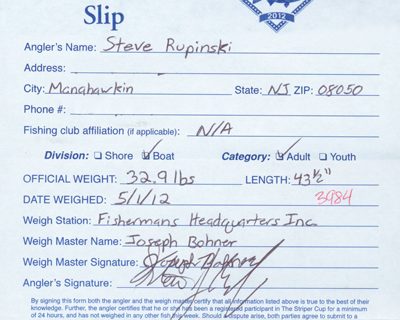 2012
Slip
Angler's Name: Steve Rupinski
Address:
City: Manahawkin State: NJ ZIP: 08050
Phone #:
Fishing club affiliation (if applicable): N/A
Division: ❑ Shore ❑ Boat Category: ❑ Adult ❑ Youth
OFFICIAL WEIGHT: 32.9 lbs LENGTH: 43 1/2"
DATE WEIGHED: 5/1/12 3984
Weigh Station: Fishermans Headquarters Inc
Weigh Master Name: Joseph Bohner
Weigh Master Signature: Joseph Bohner
Angler's Signature:
By signing this form both the angler and the weigh master certify that all information listed above is true to the best of their
knowledge. Further, the angler certifies that he or she has been a registered participant in The Striper Cup for a minimum
of 24 hours, and has not weighed in any other fish this week. Should a dispute arise, both parties agree to submit to a